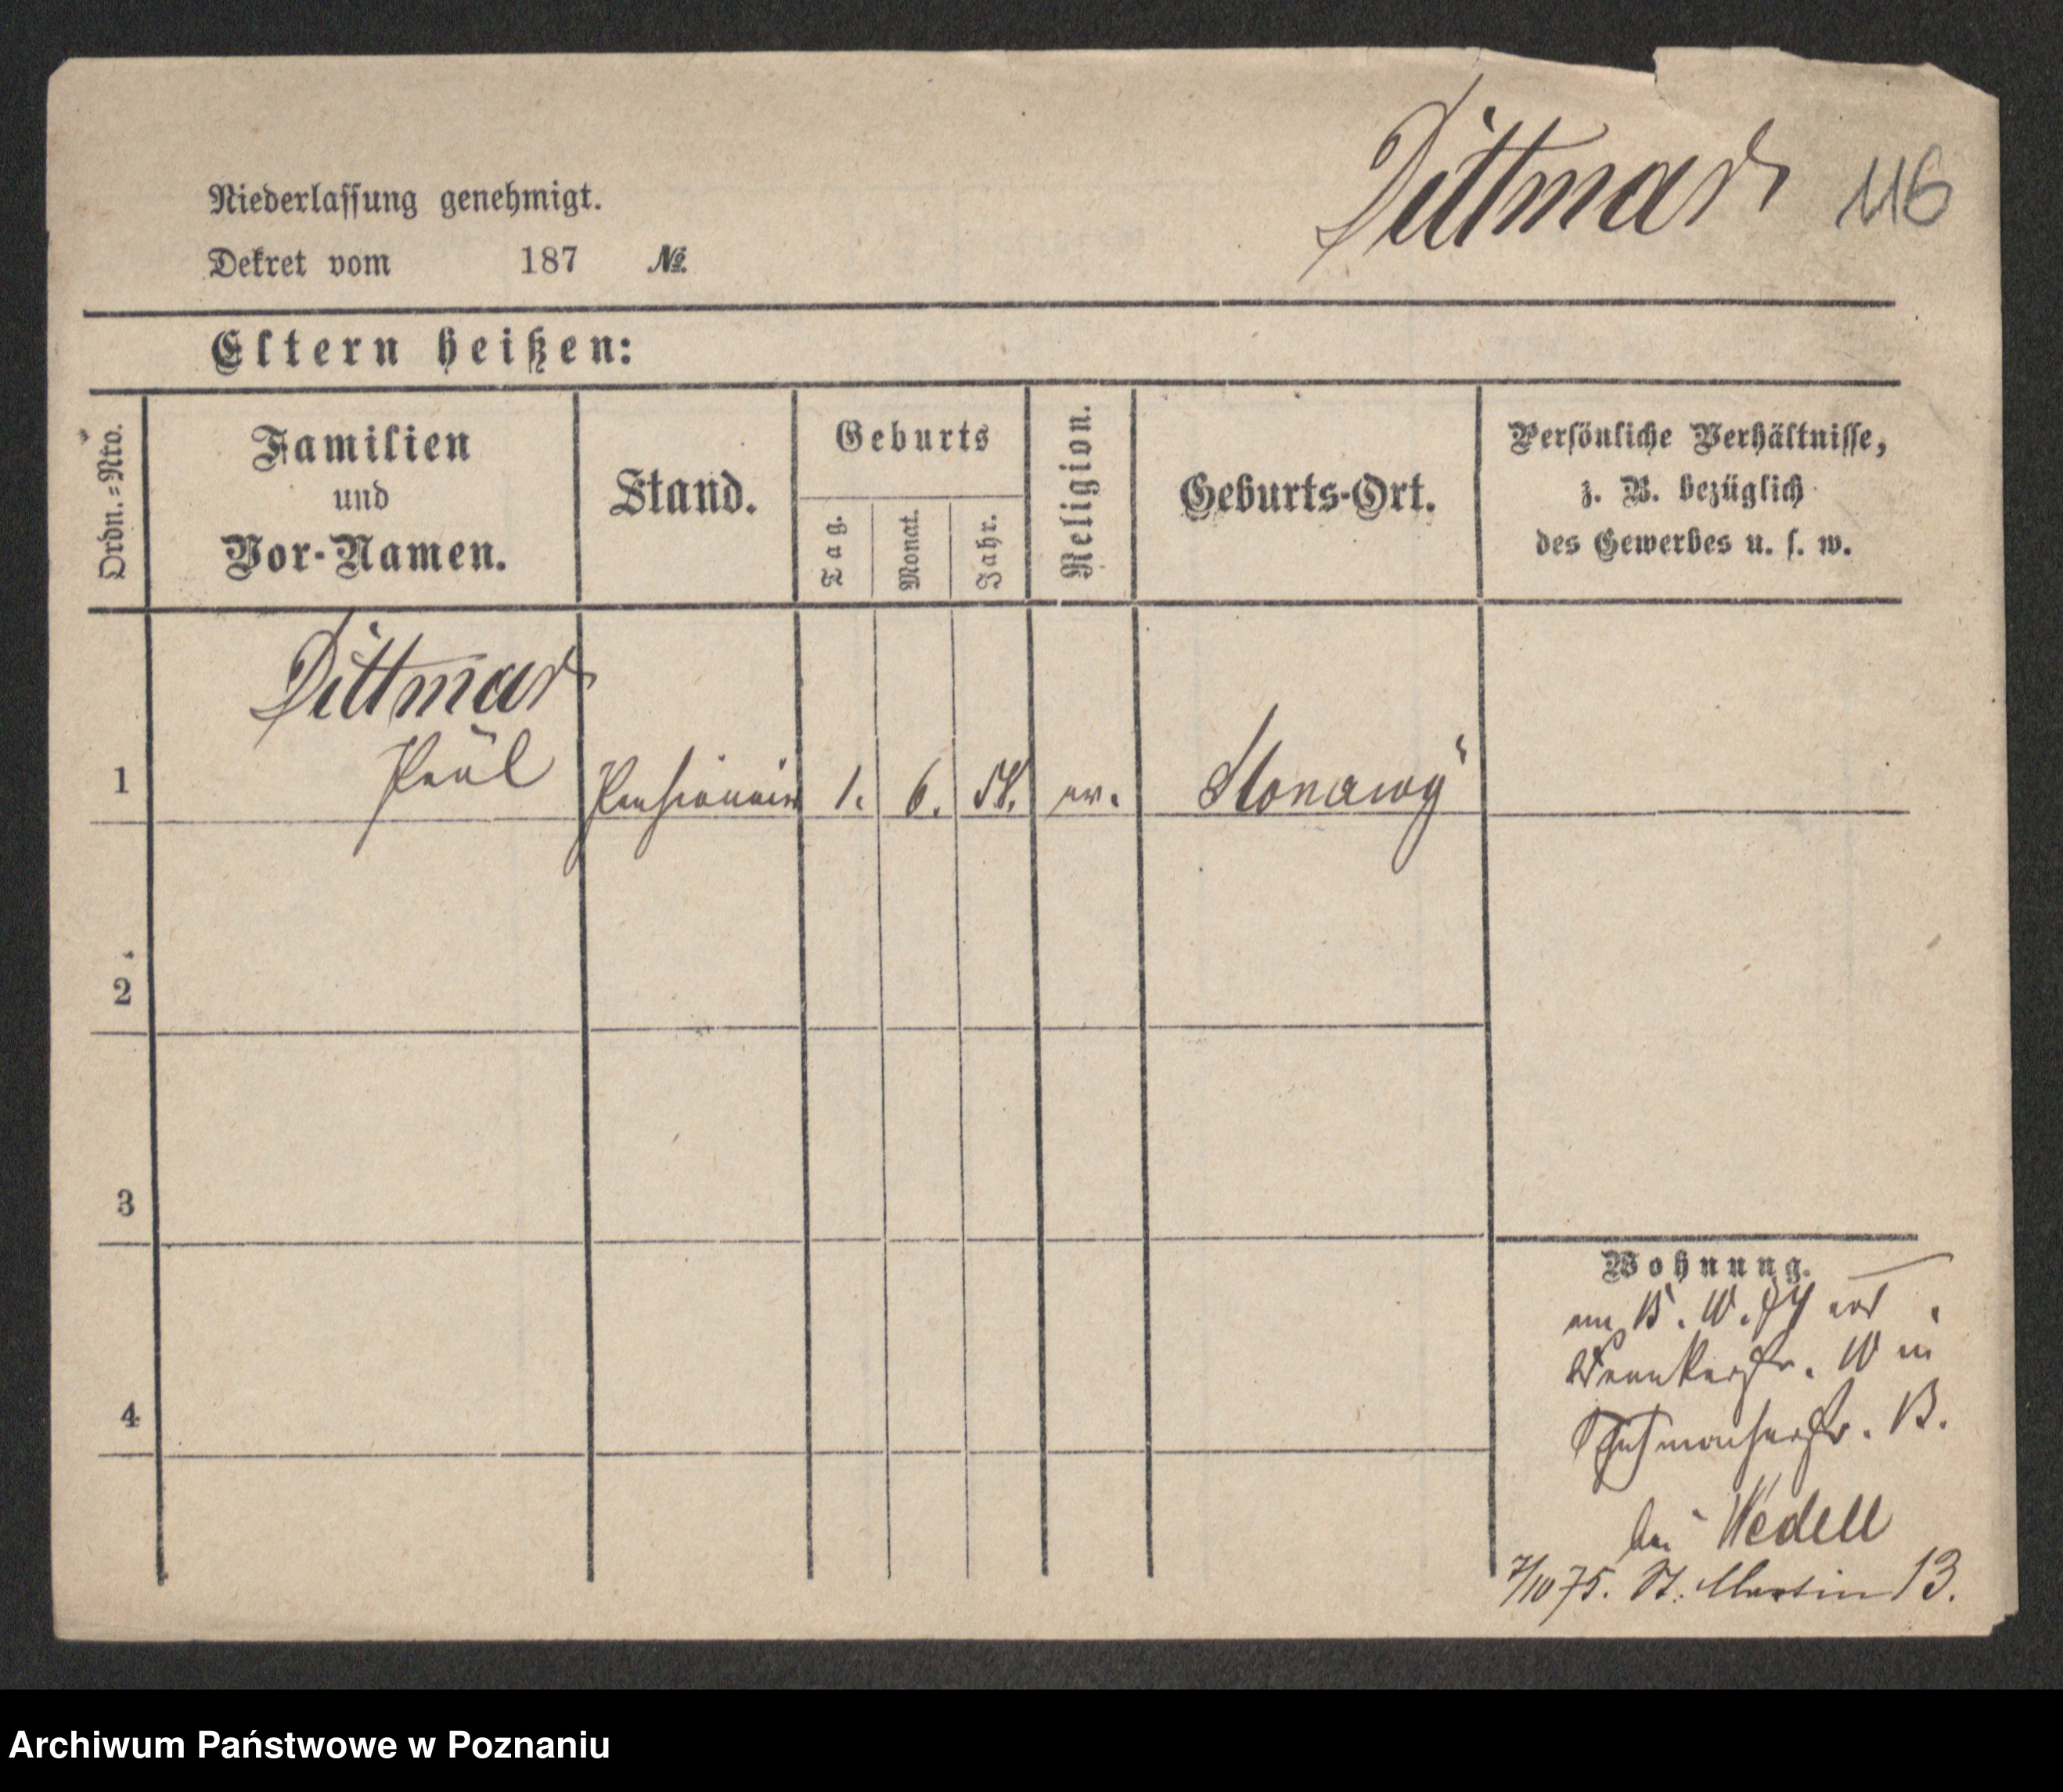 Dittmar 116
Niederlassung genehmigt.
Dekret vom 187 №
Eltern heißen:
Ordn.=Nro.
Familien
und
Vor-Namen.
Stand.
Geburts
Tag.
Monat.
Jahr.
Religion.
Geburts-Ort.
Persönliche Verhältnisse,
z. B. bezüglich
des Gewerbes u. s. w.
Dittmar
1 Paul Pensionair 1. 6. ev. Slonawy
2
3
4
Wohnung.
am
10 in
13.
bei Wedell
7/10 75. St. Martin 13.
Archiwum Państwowe w Poznaniu